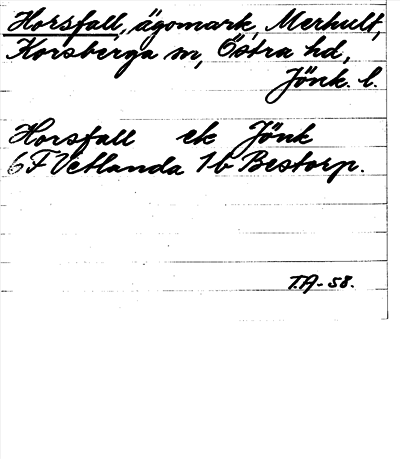 Horsfall, ägomark, Merhult,
Korsberga sn, Östra hd,
Jönk. l.
Horsfall ek Jönk
6F Vetlanda 1b Bestorp.
T.A-58.